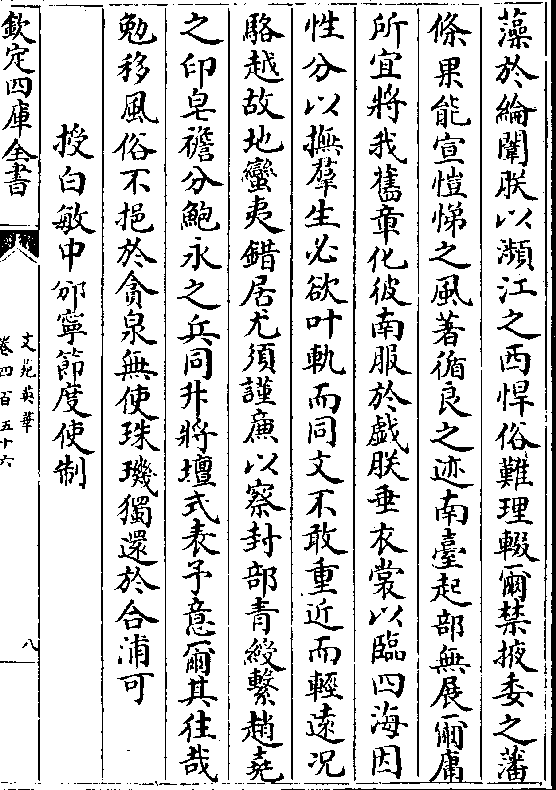 藻於綸闈朕以瀕江之西悍俗難理輟爾禁掖委之藩
條果能宣愷悌之風著循良之迹南臺起部無展爾庸
所宜將我舊章化彼南服於戲朕垂衣裳以臨四海因
性分以撫羣生必欲叶軌而同文不敢重近而輕遠况
駱越故地蠻夷錯居尤須謹廉以察封部青綬繫趙堯
之印皂襜分鮑永之兵同升將壇式表予意爾其往哉
勉移風俗不挹於貪泉無使珠璣獨還於合浦可
授白敏中邠寧節度使制
欽定四庫全書
文苑英華
卷四百五十六
八